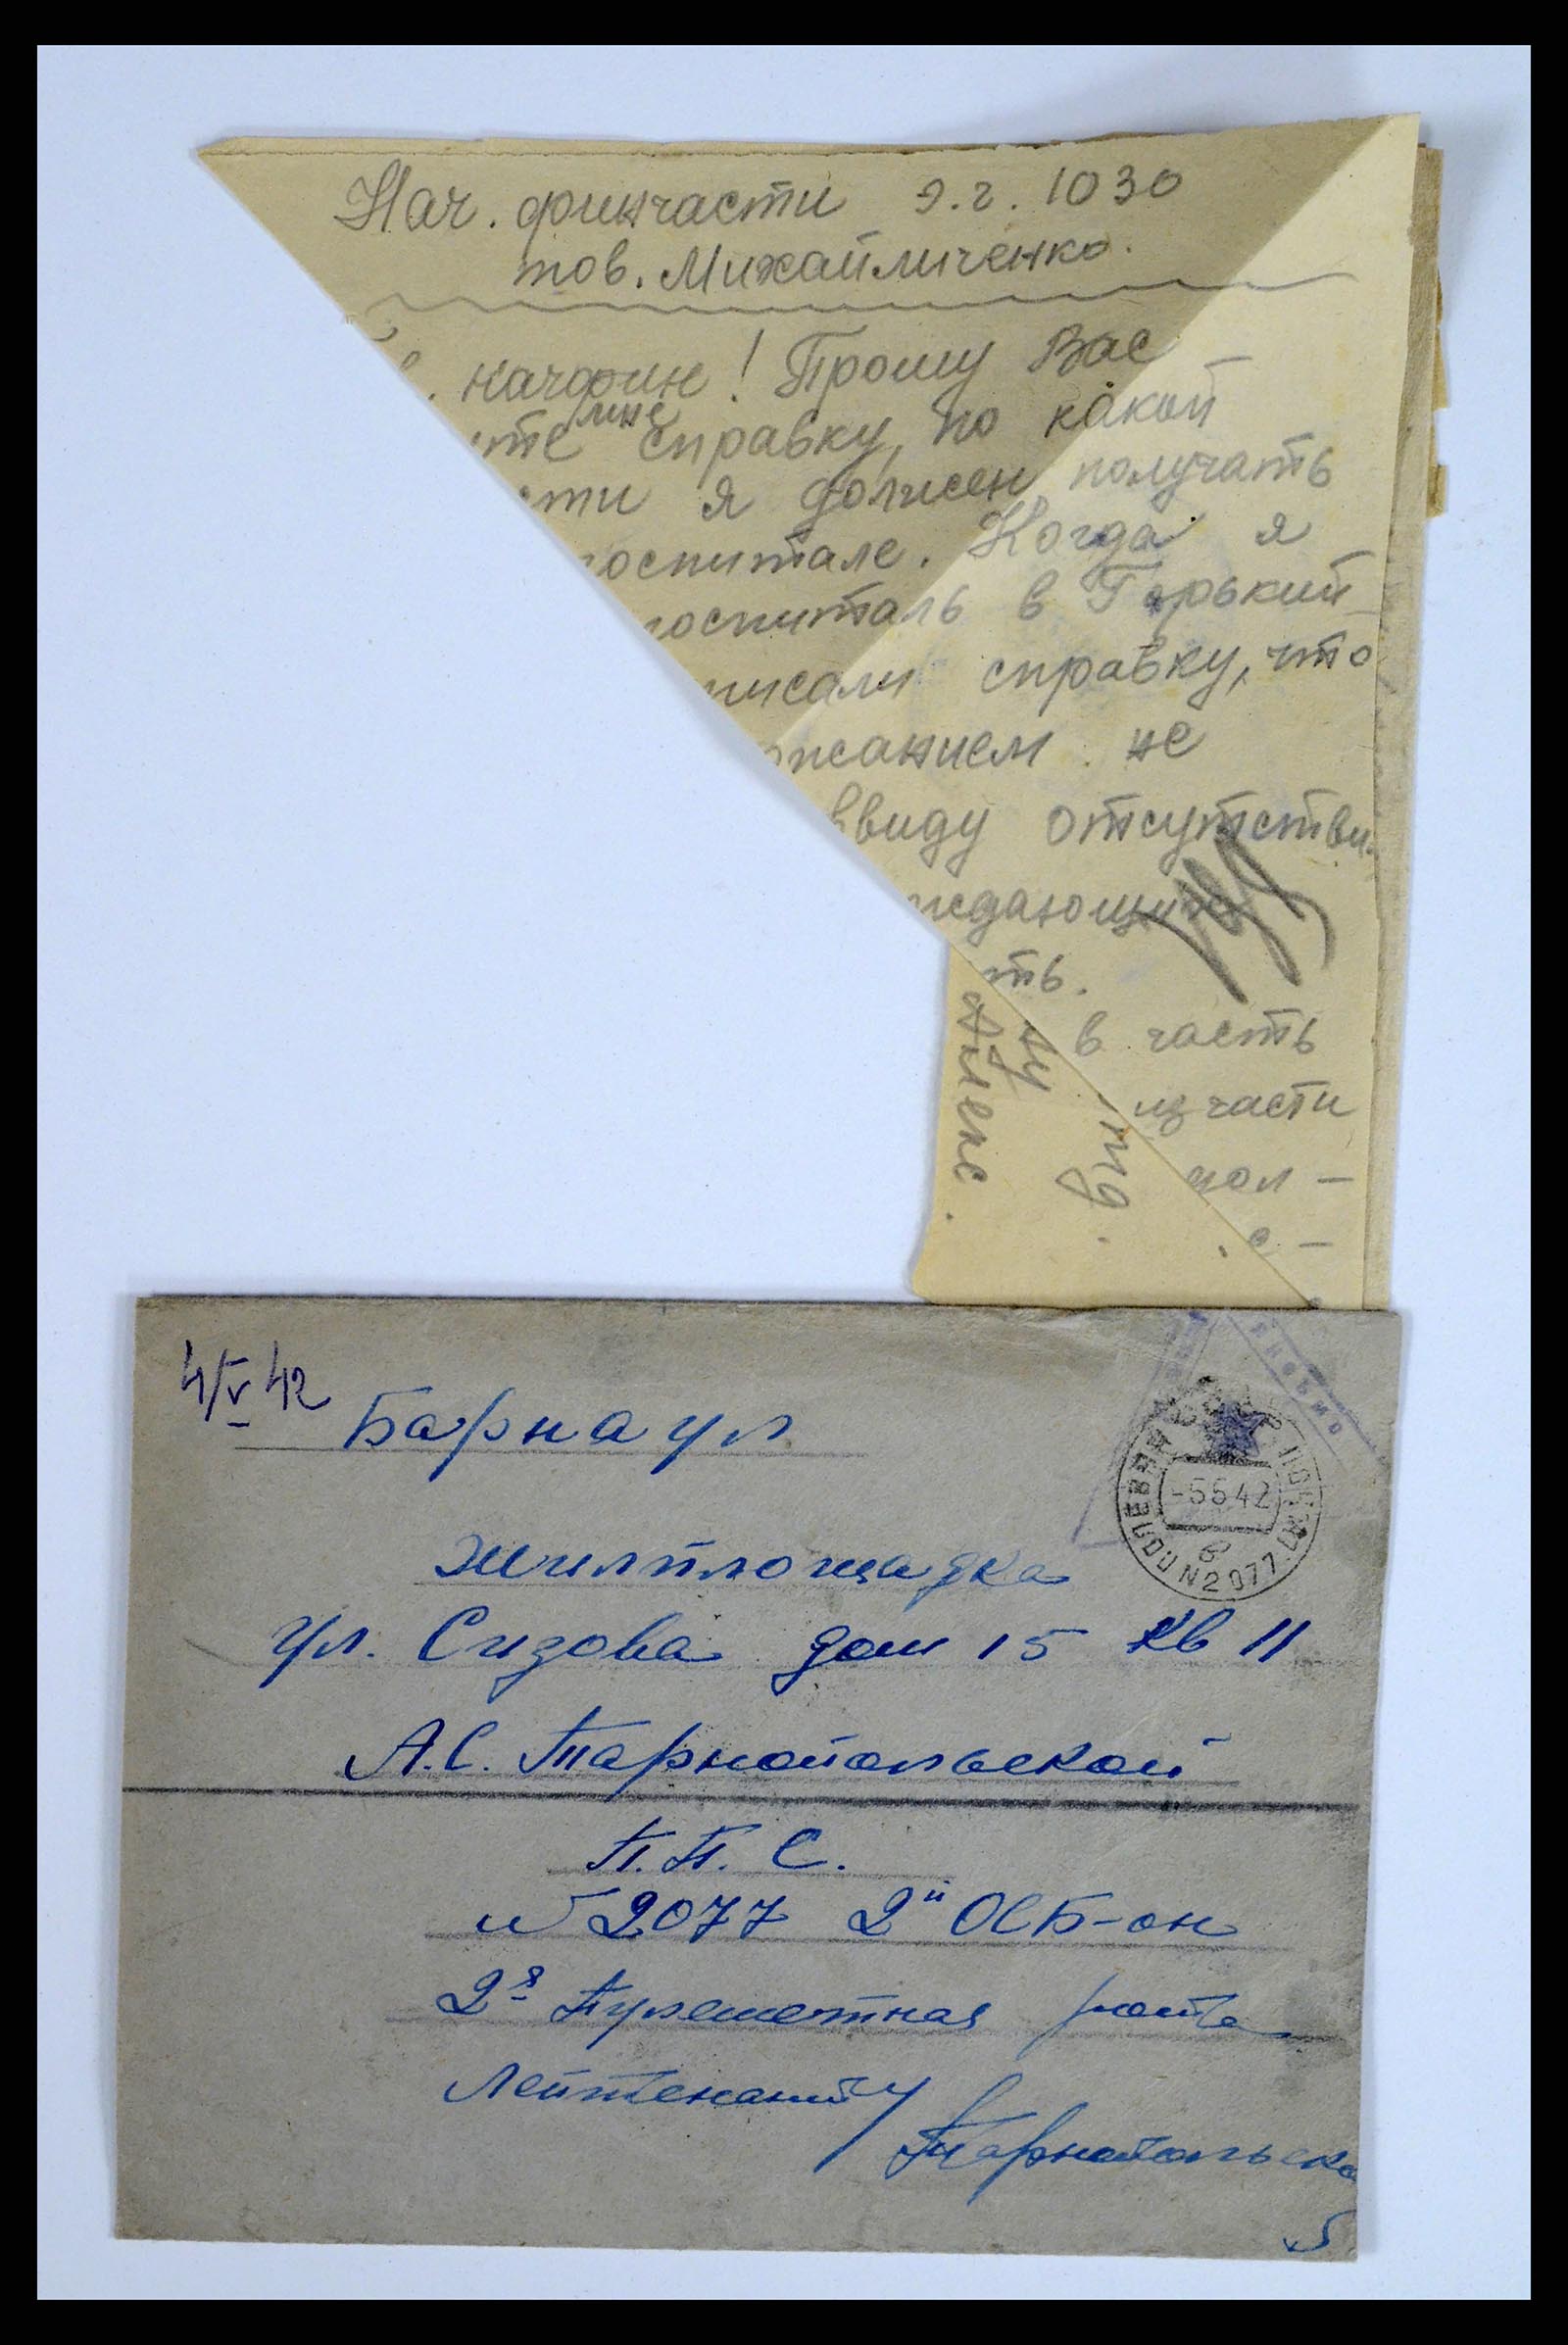 Нач. финчасти э.г. 1030
тов. Михайличенко.
. начфин! Прошу Вас
ите мне справку, по какой
сти я должен получать
госпитале. Когда я
госпиталь в Горький
писали справку, что
ржанием не
ввиду отсутстви
ждающих
ть.
в часть
из части
пол-
е-
4/V 42
Барнаул
Жилплощадка
ул. Сизова дом 15 кв 11
А.С. Тарнопольской
П.П.С.
№ 2077 2й ОСБ-он
2я Пулеметная рота
Лейтенанту
Тарнопольско
ПОЛЕВАЯ ПОЧТ
-5 5 42
в
N2077